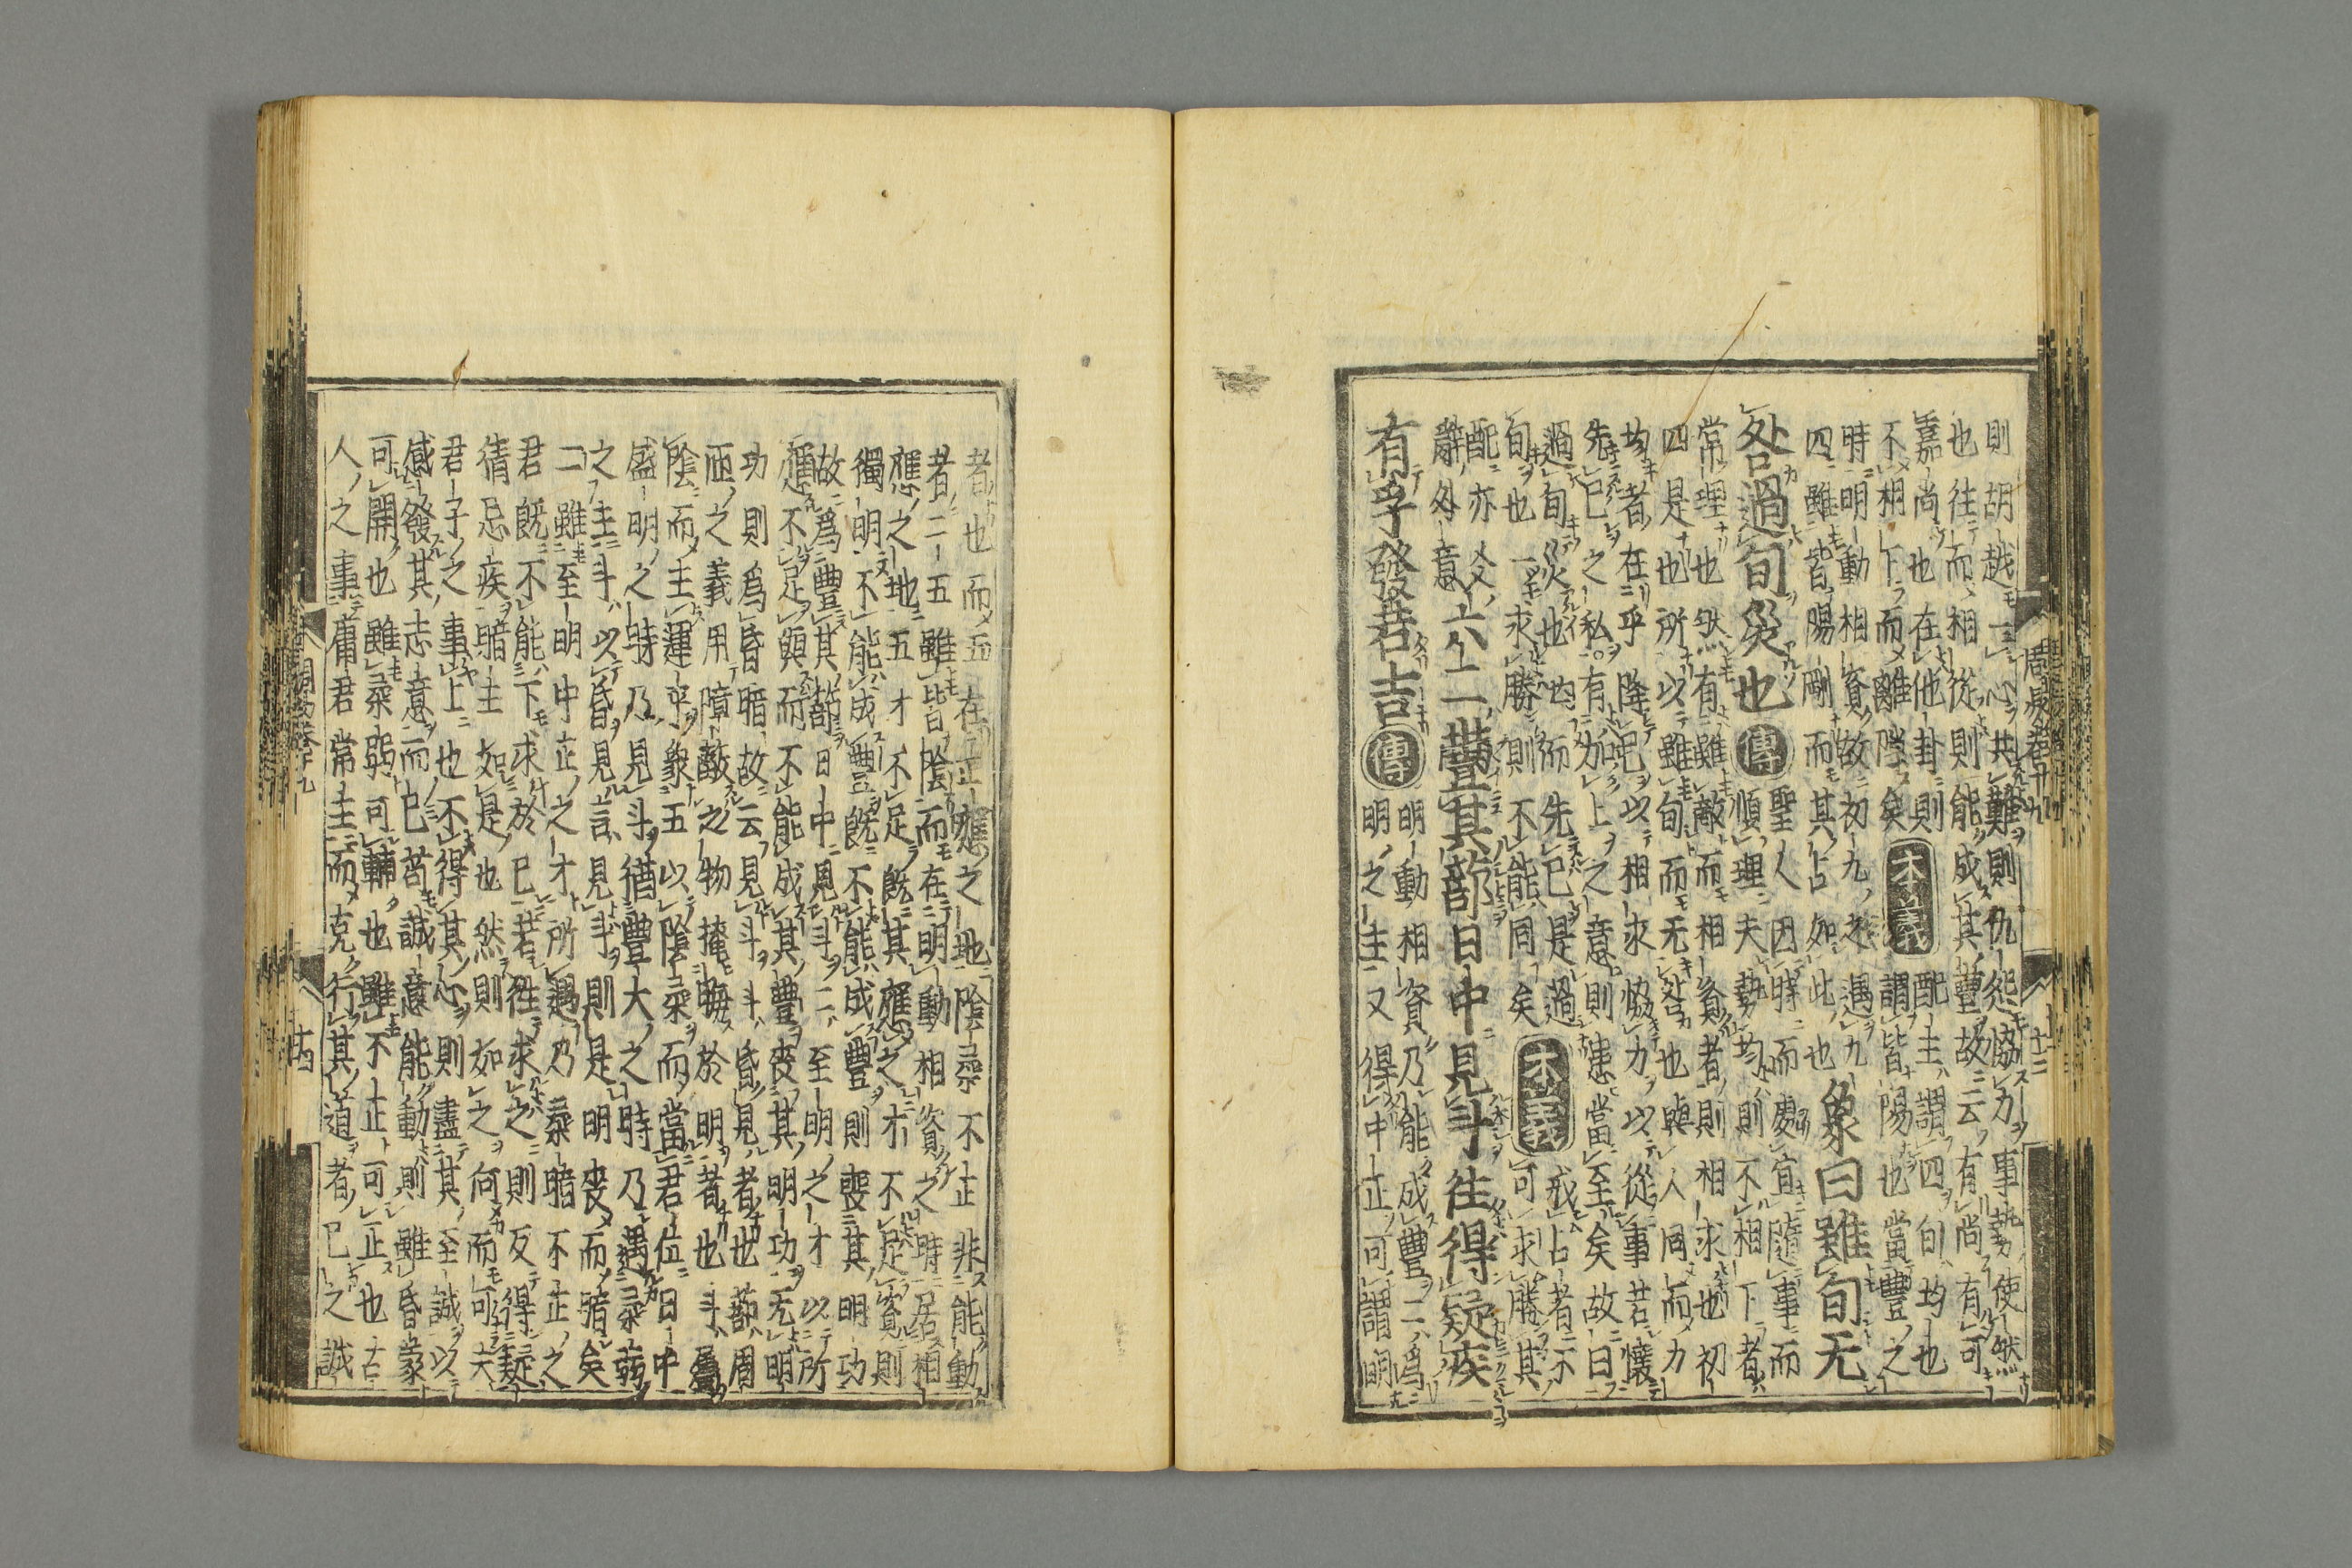 則胡越一心共難則仇怨協力事勢使然
也往而相從則能成其豐故云有尚有可
嘉尚也在他卦則配主謂四旬均也
不相下而離隙矣本義謂皆陽也當豐之
時明動相資故初九之遇九
四雖皆陽剛而其占如此也象曰雖旬无
咎過旬災也傳聖人因時而處宜隨事而
順理夫勢均則不相下者
常理也然有雖敵而相資者則相求也初
四是也所以雖旬而无咎也與人同而力
均者在乎降已以相求恊力以從事若懷
先已之私有加上之意則患當至矣故曰
過旬災也均而先已是過旬也一求勝則不能同矣
本義戒占者不可求勝其
配亦爻辭外意
六二豐其蔀日中見斗往得疑疾
有孚發若吉傳
明動相資乃能成豐二爲明
明之主又得中正可謂明
者也而五在正應之地陰柔不正非能動
者二五雖皆陰而在明動相資之時居相
應之地五才不足既其應之才不足資則
獨明不能成豐既不能成豐則喪其明功
故爲豐其蔀日中見斗二至明之才以所
應不足與而不能成其豐喪其明功无明
功則爲昏暗故云見斗斗昏見者也蔀周
匝之義用障蔽之物掩晦於明者也斗屬
陰而主運乎象五以陰柔而當君位日中
盛明之時乃見斗猶豐大之時乃遇柔弱
之主斗以昏見言見斗則是明喪而暗矣
二雖至明中正之才所遇乃柔暗不正之
君既不能下求於己若往求之則反得疑
猜忌疾暗主如是也然則如之何而可夫
君子之事上也不得其心則盡其至誠以
感發其志意而已苟誠意能動則雖昏蒙
可開也雖柔弱可輔也雖不正可正也古
人之事庸君常主而克行其道者己之誠
周易卷十九
十三
周易卷十九
十四